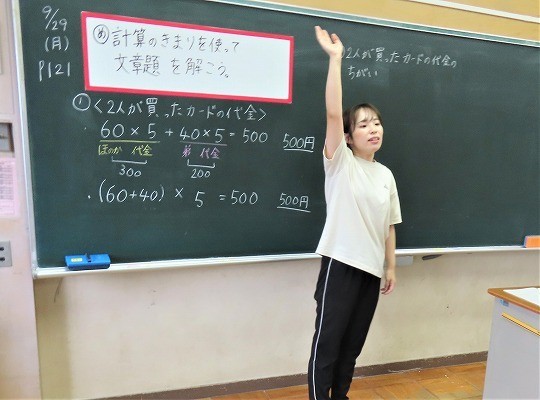 9/29
(月)
P121
め 計算のきまりを使って
文章題を解こう。
① <2人が買ったカードの代金>
・60×5+40×5=500 500円
ほのか 代金 弟 代金
300 200
・(60+40)×5=500 500円
2人が買ったカードの代金の
ちがい